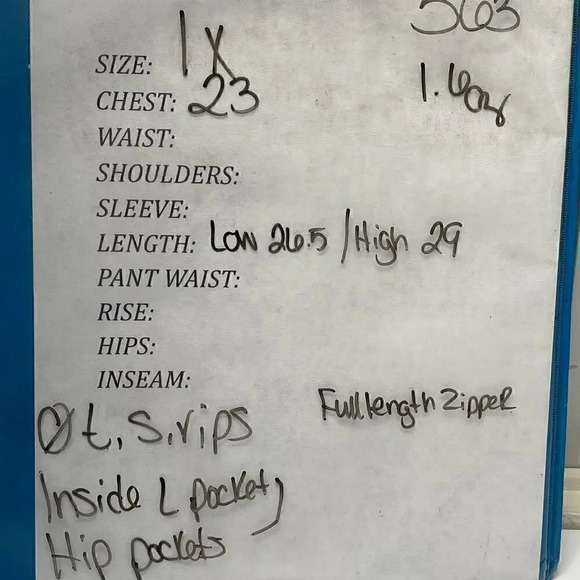 563
SIZE: 1X
1.602
CHEST: 23
WAIST:
SHOULDERS:
SLEEVE:
LENGTH: Low 26.5 / High 29
PANT WAIST:
RISE:
HIPS:
INSEAM:
Full length Zipper
Ø t, s, rips
Inside L pocket,
Hip pockets